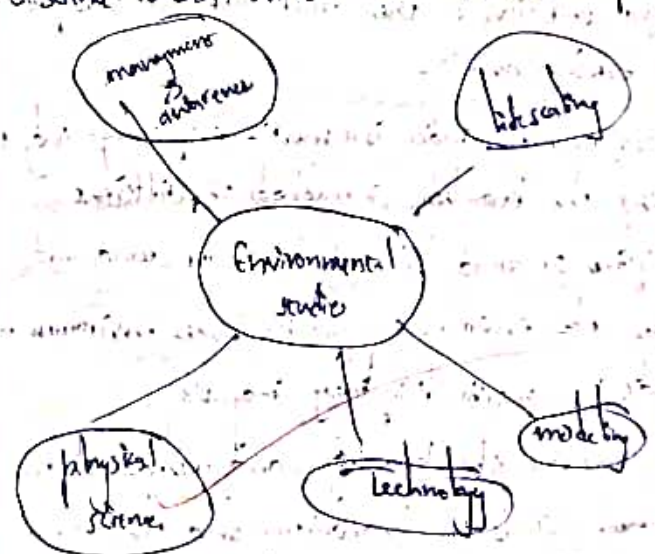 management
&
awareness
Environmental
studies
physical
science
technology
modeling